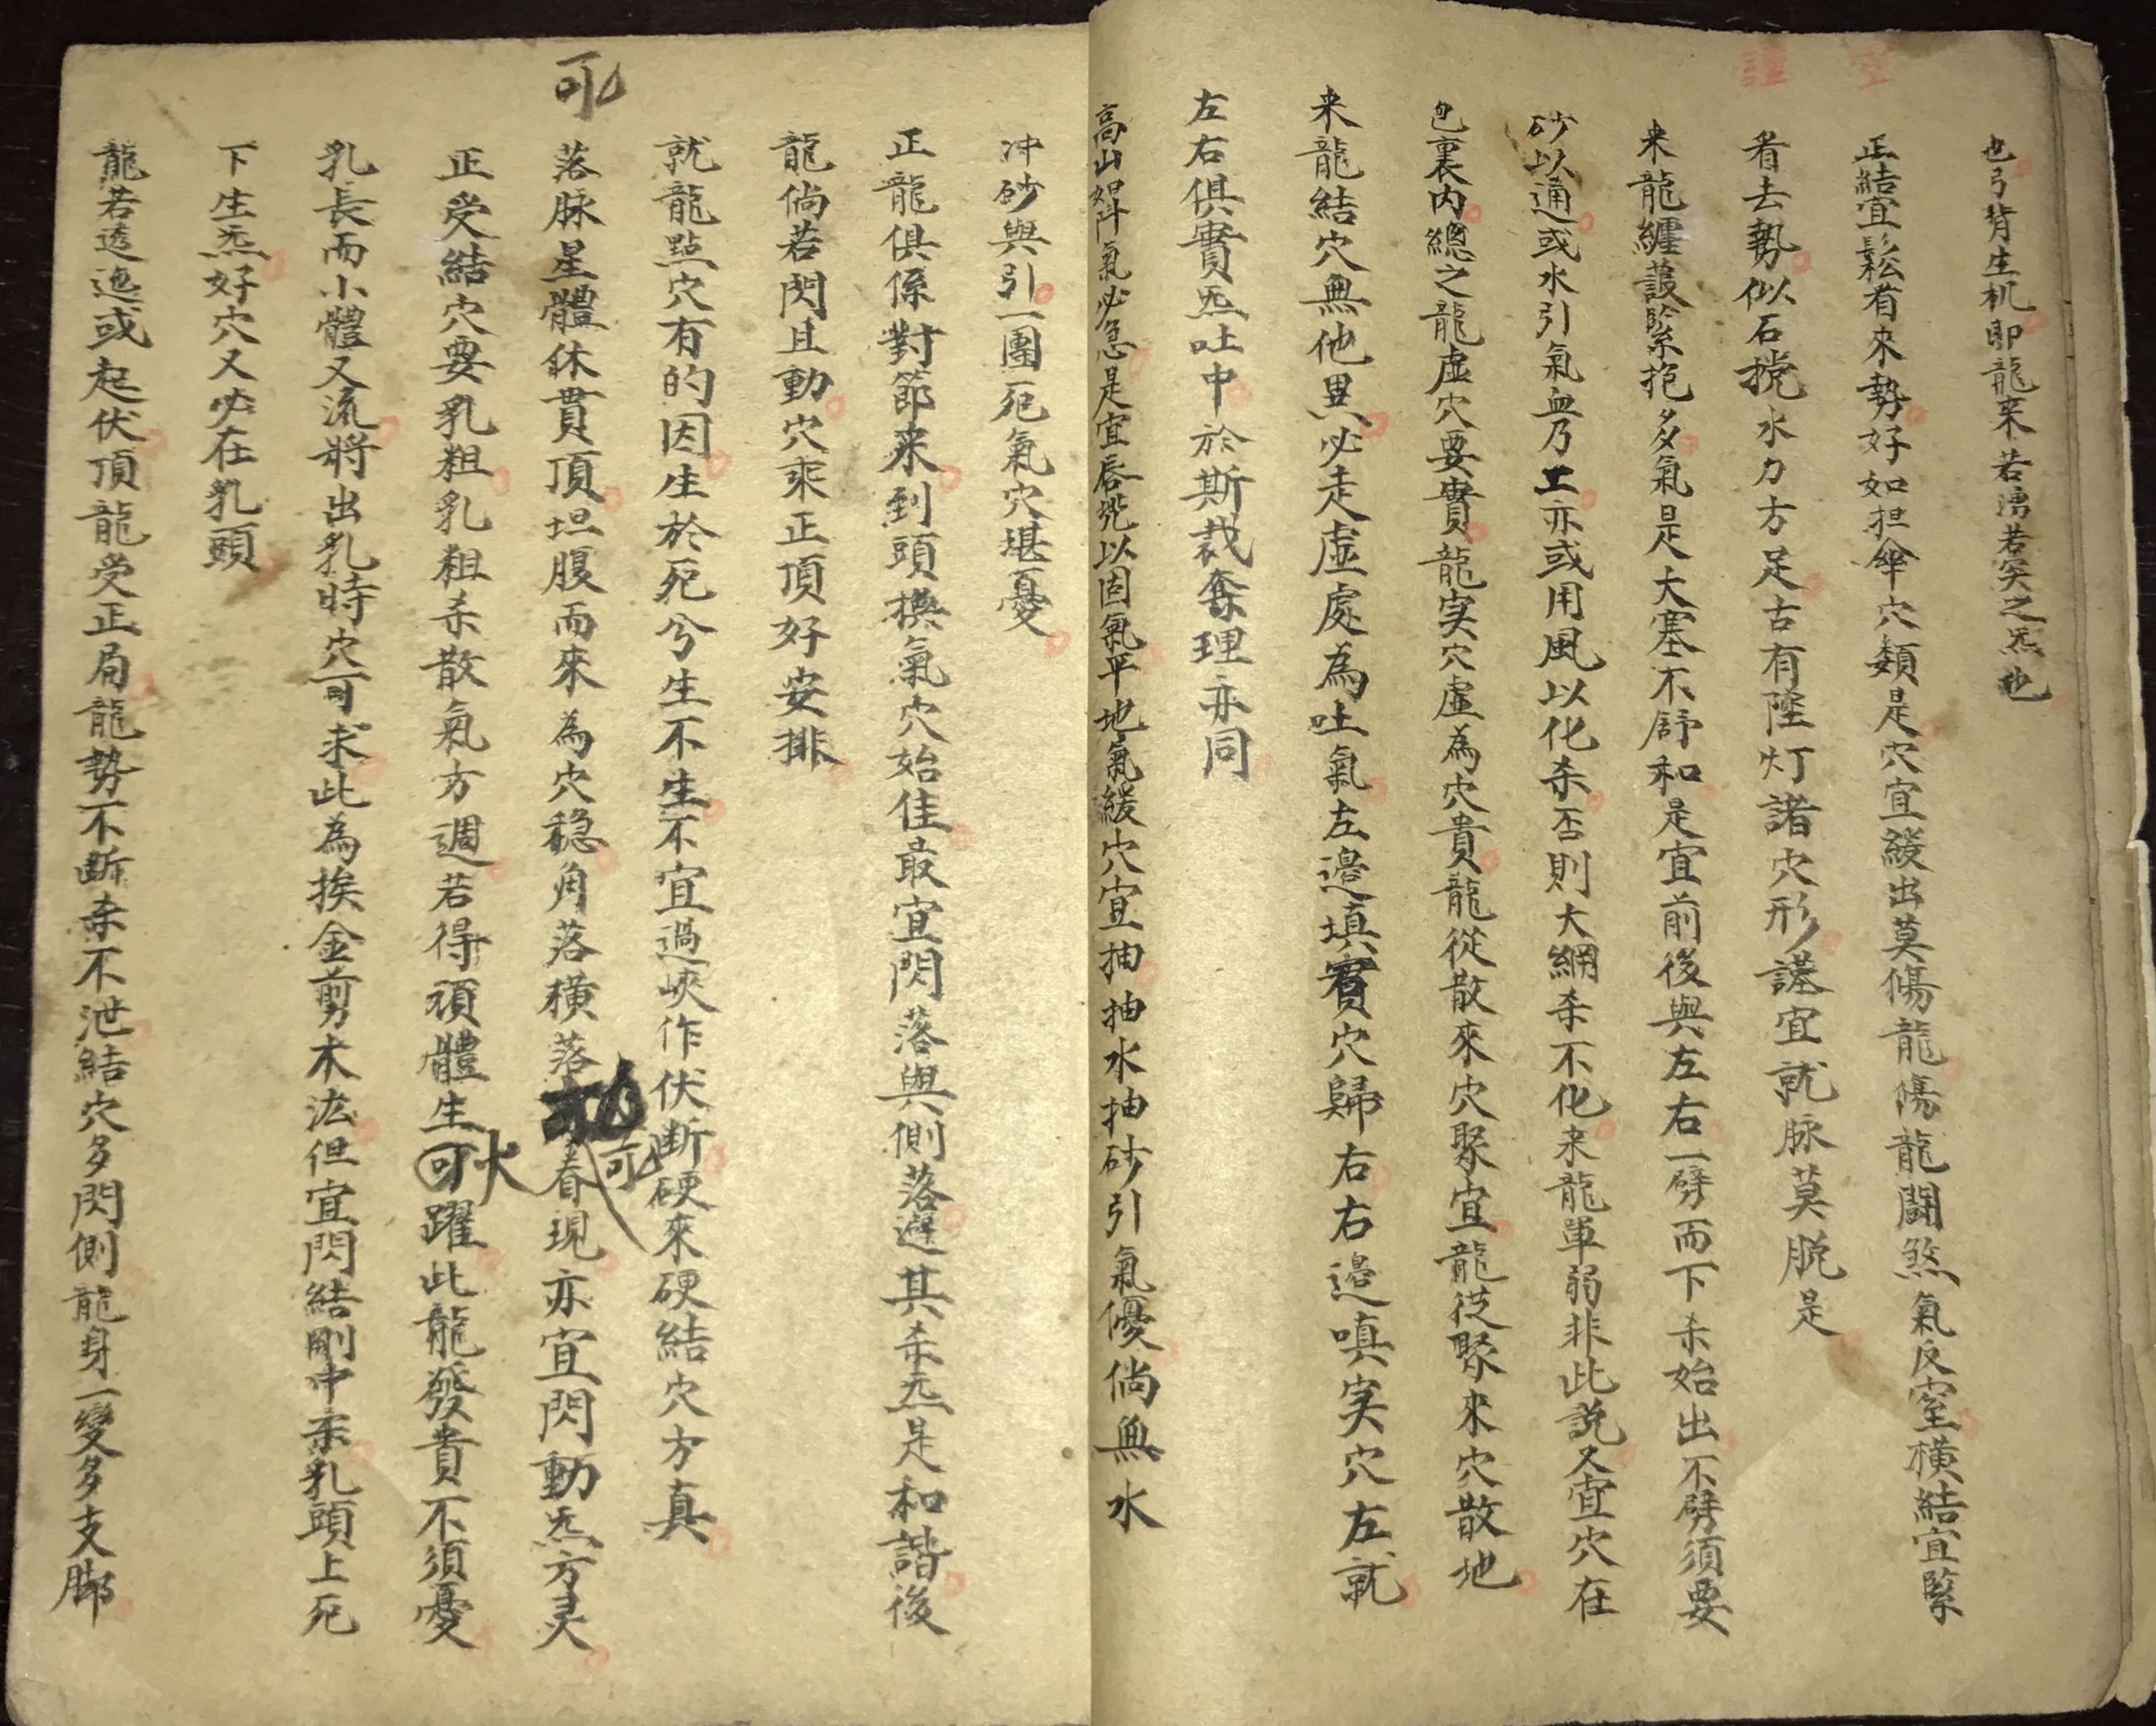 也弓背生机即龍來若湧若突之炁也
正結宜鬆看來勢好如担傘穴類是穴宜緩出莫傷龍傷龍鬪煞氣反室橫結宜緊
看去勢似石撓水力方足古有陸灯諸穴形謹宜就脉莫脱是
来龍纏護緊抱多氣是大塞不舒和是宜前後與左右一劈而下杀始出不劈須要
砂以通或水引氣無乃工亦或用風以化杀否則大網杀不化来龍單弱非此説又宜穴在
包裏内總之龍虚穴要實龍実穴虚為穴貴龍從散來穴聚宜龍從聚来穴散地
来龍結穴無他異必走虚處為吐氣左邉填實穴歸右右邉嗔実穴左就
左右俱實炁吐中於斯裁奪理亦同
高山氣必急是宜唇以固氣平地氣緩穴宜抽抽水抽砂引氣優倘無水
冲砂與引一團死氣穴堪憂
正龍俱係對節来到頭換氣穴始佳最宜閃落與側落避其杀炁是和諧後
龍倘若閃且動穴乘正頂好安排
可
就龍點穴有的因生於死兮生不生不宜過峽作伏断硬來硬結穴方真
落脉星體休貫頂坦腹而來為穴穏角落橫落春現亦宜閃動炁方灵
正受結穴要乳粗乳粗杀散氣方週若得頑體生可大躍此龍發貴不須憂
乳長而小體又流將出乳時穴可求此為挨金剪木法但宜閃結剛中杀乳頭上死
下生炁好穴又必在乳頭
龍若逶迤或起伏頂龍受正局龍勢不断杀不泄結穴多閃側龍身一變多支脚